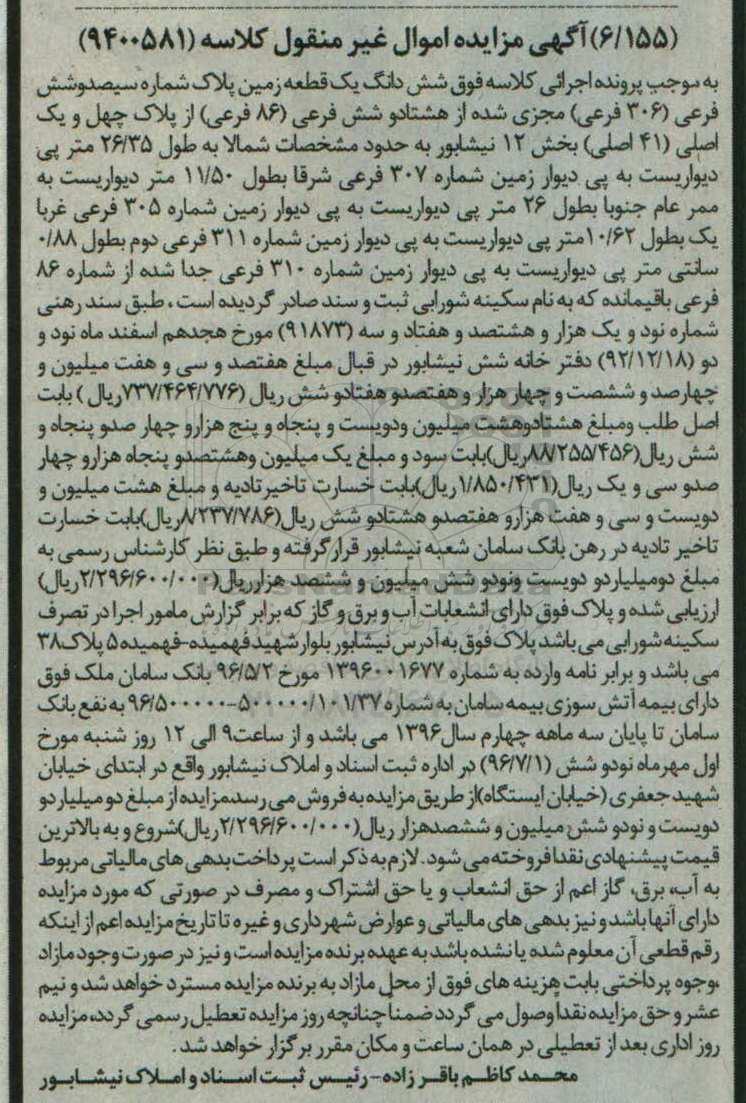 (۶/۱۵۵) آگهی مزایده اموال غیر منقول کلاسه (۹۴۰۰۵۸۱)
به موجب پرونده اجرائی کلاسه فوق شش دانگ یک قطعه زمین پلاک شماره سیصدوشش
فرعی (۳۰۶ فرعی) مجزی شده از هشتادو شش فرعی (۸۶ فرعی) از پلاک چهل و یک
اصلی (۴۱ اصلی) بخش ۱۲ نیشابور به حدود مشخصات شمالا به طول ۲۶/۳۵ متر پی
دیواریست به پی دیوار زمین شماره ۳۰۷ فرعی شرقا بطول ۱۱/۵۰ متر دیواریست به
ممر عام جنوبا بطول ۲۶ متر پی دیواریست به پی دیوار زمین شماره ۳۰۵ فرعی غربا
یک بطول ۱۰/۶۲متر پی دیواریست به پی دیوار زمین شماره ۳۱۱ فرعی دوم بطول ۰/۸۸
سانتی متر پی دیواریست به پی دیوار زمین شماره ۳۱۰ فرعی جدا شده از شماره ۸۶
فرعی باقیمانده که به نام سکینه شورابی ثبت و سند صادر گردیده است ، طبق سند رهنی
شماره نود و یک هزار و هشتصد و هفتاد و سه (۹۱۸۷۳) مورخ هجدهم اسفند ماه نود و
دو (۹۲/۱۲/۱۸) دفتر خانه شش نیشابور در قبال مبلغ هفتصد و سی و هفت میلیون و
چهارصد و شصت و چهار هزار و هفتصدو هفتادو شش ریال (۷۳۷/۴۶۴/۷۷۶ریال ) بابت
اصل طلب ومبلغ هشتادوهشت میلیون ودویست و پنجاه و پنج هزارو چهار صدو پنجاه و
شش ریال(۸۸/۲۵۵/۴۵۶ریال)بابت سود و مبلغ یک میلیون وهشتصدو پنجاه هزارو چهار
صدو سی و یک ریال(۱/۸۵۰/۴۳۱ریال)بابت خسارت تاخیرتادیه و مبلغ هشت میلیون و
دویست و سی و هفت هزارو هفتصدو هشتادو شش ریال(۸/۲۳۷/۷۸۶ریال)بابت خسارت
تاخیر تادیه در رهن بانک سامان شعبه نیشابور قرارگرفته و طبق نظر کارشناس رسمی به
مبلغ دومیلیاردو دویست ونودو شش میلیون و ششصد هزارریال(۲/۲۹۶/۶۰۰/۰۰۰ریال)
ارزیابی شده و پلاک فوق دارای انشعابات آب و برق و گاز که برابر گزارش مامور اجرا در تصرف
سکینه شورابی می باشد پلاک فوق به آدرس نیشابور بلوار شهید فهمیده-فهمیده ۵ پلاک۳۸
می باشد و برابر نامه وارده به شماره ۱۳۹۶۰۰۱۶۷۷ مورخ ۹۶/۵/۲ بانک سامان ملک فوق
دارای بیمه آتش سوزی بیمه سامان به شماره ۱۰۱/۳۷/ به نفع بانک
سامان تا پایان سه ماهه چهارم سال۱۳۹۶ می باشد و از ساعت۹ الی ۱۲ روز شنبه مورخ
اول مهرماه نودو شش (۹۶/۷/۱) در اداره ثبت اسناد و املاک نیشابور واقع در ابتدای خیابان
شهید جعفری (خیابان ایستگاه)از طریق مزایده به فروش می رسد.مزایده از مبلغ دو میلیارد و
دویست و نودو شش میلیون و ششصدهزار ریال(۲/۲۹۶/۶۰۰/۰۰۰ریال)شروع و به بالاترین
قیمت پیشنهادی نقدا فروخته می شود . لازم به ذکر است پرداخت بدهی های مالیاتی مربوط
به آب، برق، گاز اعم از حق انشعاب و یا حق اشتراک و مصرف در صورتی که مورد مزایده
دارای آنها باشد و نیز بدهی های مالیاتی و عوارض شهرداری و غیره تا تاریخ مزایده اعم از اینکه
رقم قطعی آن معلوم شده یا نشده باشد به عهده برنده مزایده است و نیز در صورت وجود مازاد
،وجوه پرداختی بابت هزینه های فوق از محل مازاد به برنده مزایده مسترد خواهد شد و نیم
عشر و حق مزایده نقدا وصول می گردد ضمناً چنانچه روز مزایده تعطیل رسمی گردد،مزایده
روز اداری بعد از تعطیلی در همان ساعت و مکان مقرر برگزار خواهد شد .
محمد کاظم باقر زاده - رئیس ثبت اسناد و املاک نیشابور